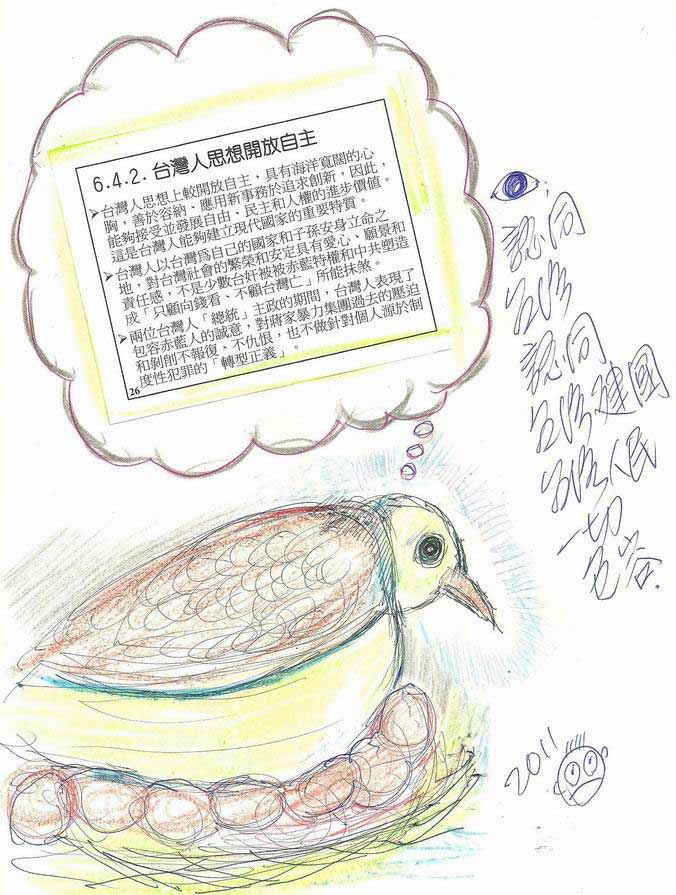 6.4.2. 台灣人思想開放自主
➢台灣人思想上較開放自主，具有海洋寬闊的心
胸，善於容納、應用新事務於追求創新，因此，
能夠接受並發展自由、民主和人權的進步價值。
這是台灣人能夠建立現代國家的重要特質。
➢台灣人以台灣為自己的國家和子孫安身立命之
地，對台灣社會的繁榮和安定具有愛心、願景和
責任感，不是少數台奸被被赤藍特權和中共塑造
成「只顧向錢看、不顧台灣亡」所能抹煞。
➢兩位台灣人「總統」主政的期間，台灣人表現了
包容赤藍人的誠意，對蔣家暴力集團過去的壓迫
和剝削不報復、不仇恨，也不做針對個人源於制
度性犯罪的「轉型正義」。
26
認同
台灣
認同
台灣建國
台灣人民
一切
包容.
2011